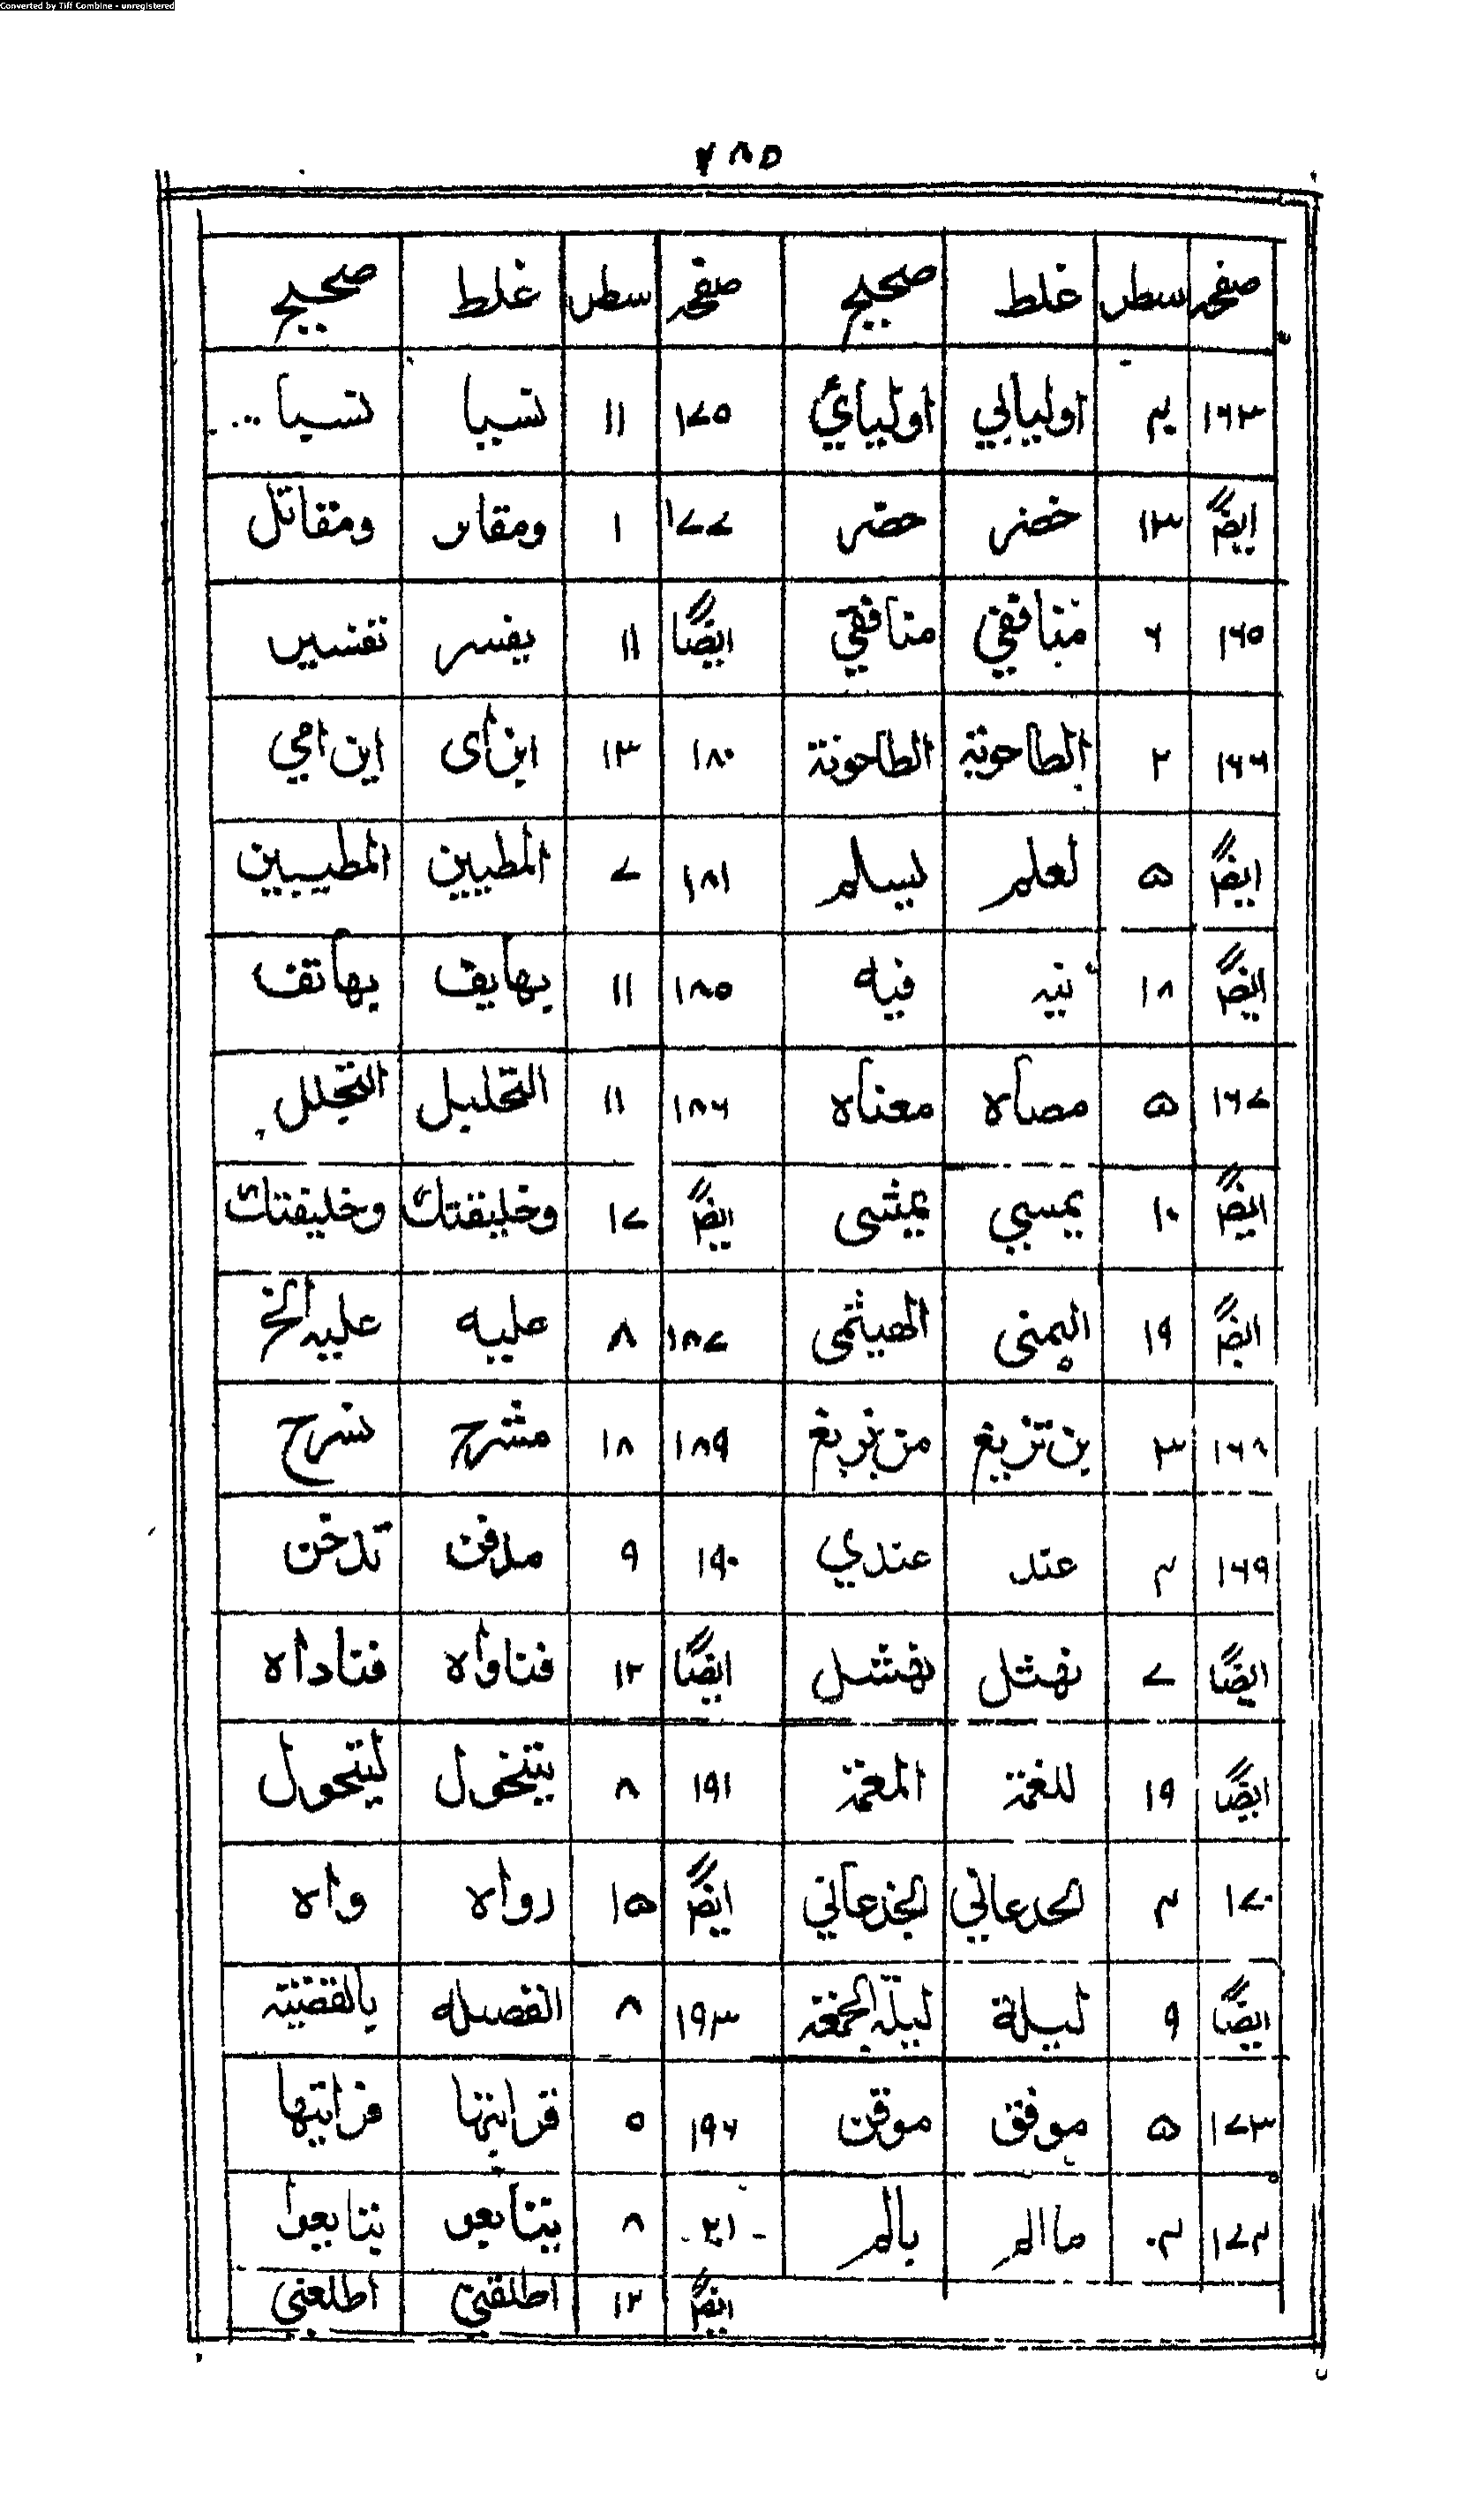 Converted by Tiff Combine - unregistered
۲۸۵
صفحہ سطر غلط صحیح صفحہ سطر غلط صحیح
۱۶۳ ۴ اولیابی اولیائي ۱۷۵ ۱۱ تسبیا تسیا
ایضًا ۱۳ خضر حضر ۱۷۷ ۱ ومقاىر ومقاتل
۱۶۵ ۶ منبافقي منافقي ایضًا ۱۱ یفسر تفسیر
۱۶۶ ۲ الطاحوتہ الطاحونة ۱۸۰ ۱۳ این أی این امي
ایضًا ۵ لعلم لیسلم ۱۸۱ ۷ المطیین المطیبین
ایضًا ۱۸ نیہ فیه ۱۸۵ ۱۱ بهایف بهاتف
۱۶۷ ۵ مصاه معناه ۱۸۶ ۱۱ التحلیل التحلل
ایضًا ۱۰ یمسي یمشی ایضًا ۱۷ وخلیقتك وخلیفتك
ایضًا ۱۹ الیمنی الهیثمی ۱۸۷ ۸ علیه علیہ الخ
۱۶۸ ۳ ۱۸۹ ۱۸ مشرح نسرح
۱۶۹ ۴ عند عندي ۱۹۰ ۹ مدفن تدخن
ایضًا ۷ نهثل نهشل ایضًا ۱۲ فناواه فناداه
ایضًا ۱۹ للغمة المغمة ۱۹۱ ۸ یتنخول لیتحول
۱۷۰ ۴ الحدعاني الجذعاني ایضًا ۱۵ رواه واه
ایضًا ۹ لیلة لیلة الجمعة ۱۹۳ ۸ الفصله بالقضیة
۱۷۳ ۵ موفق موقن ۱۹۶ ۵ قرابتها قرابتیها
۱۷۴ ۴ ماالم بالم ۲۱۰ ۸ یتنابعو یتتابعوا
ایضًا ۱۲ اطلقني اطلعني